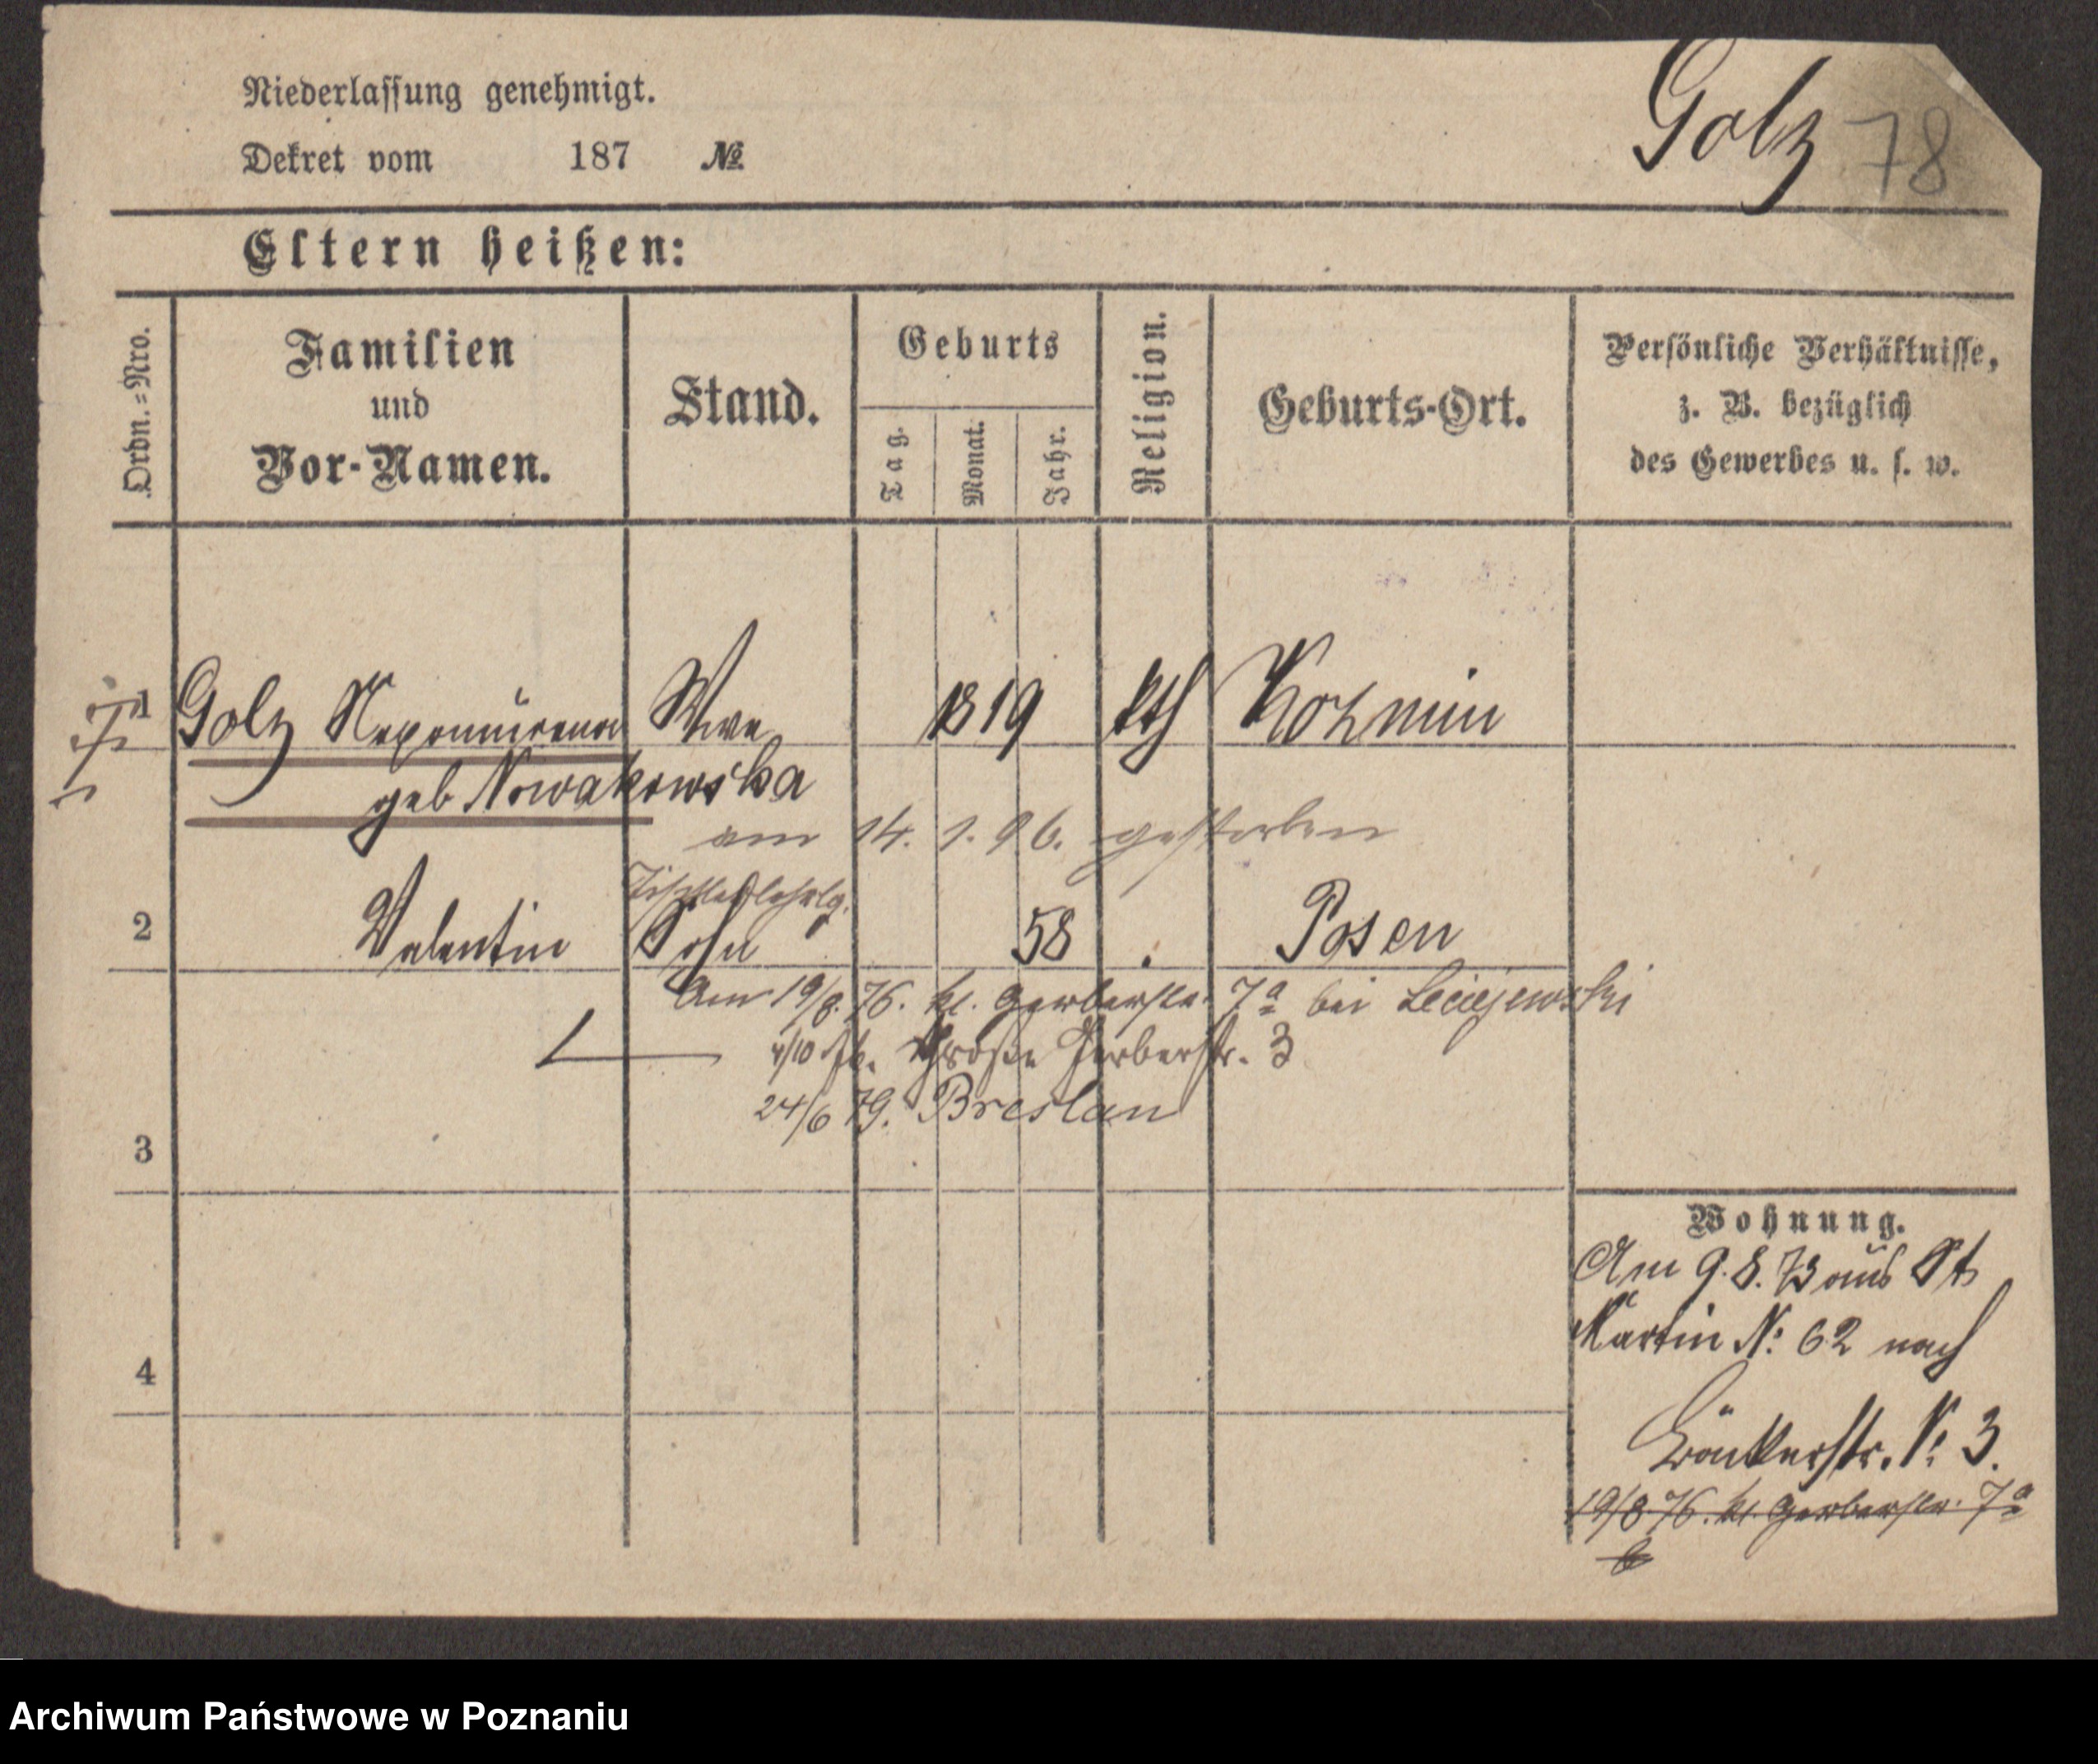 Niederlassung genehmigt.
Golz 78
Dekret vom 187 №
Eltern heißen:
Ordn.=Nro.
Familien
und
Vor-Namen.
Stand.
Geburts
Tag.
Monat.
Jahr.
Religion.
Geburts-Ort.
Persönliche Verhältnisse,
z. B. bezüglich
des Gewerbes u. s. w.
1 Golz Nepomucena Wwe 1819 kth Kozmin
geb Nowakowska
am 14. 1. 96. gestorben
Tischlerlehrlg.
2 Valentin Sohn 58 Posen
Am 19/8. 76. kl. Gerberstr. 7a bei Leciejewski
4/10 Große Gerberstr. 3
24/6 79. Breslau
3
4
Wohnung.
Am 9. 8. 73 aus St
Martin N: 62 nach
N: 3.
19/8. 76. kl. Gerberstr. 7a
Archiwum Państwowe w Poznaniu